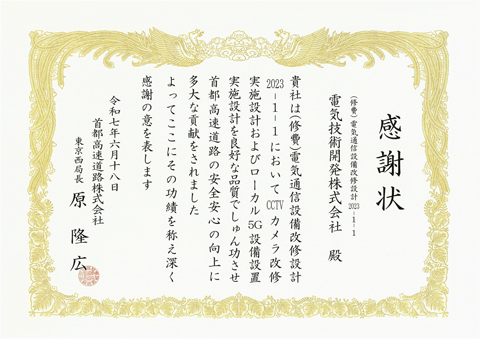 感謝状
(修費)電気通信設備改修設計2023-1-1
電気技術開発株式会社 殿
貴社は(修費)電気通信設備改修設計
2023-1-1においてCCTVカメラ改修
実施設計およびローカル5G設備設置
実施設計を良好な品質でしゅん功させ
首都高速道路の安全安心の向上に
多大な貢献をされました
よってここにその功績を称え深く
感謝の意を表します
令和七年六月十八日
首都高速道路株式会社
東京西局長 原隆広